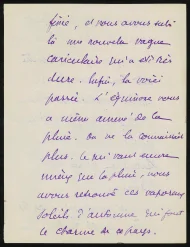 finie, et nous avons subi
là une nouvelle vague
caniculaire qui a été très
dure. Enfin, la voici
passée. L'équinoxe nous
a même amené de la
pluie. On ne la connaissait
plus. Ce qui vaut encore
mieux que la pluie, nous
avons retrouvé ces vaporeux
soleils d'automne qui font
le charme de ce pays.